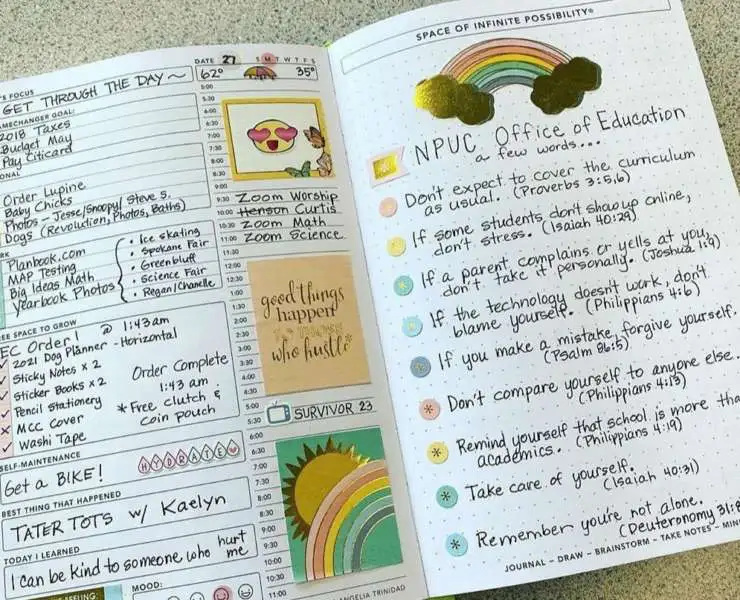 'S FOCUS
GET THROUGH THE DAY ~
AMECHANGER GOAL:
2018 Taxes
Budget May
Pay Citicard
ONAL
Order Lupine
Baby Chicks
Photos - Jesse/Snoopy/ Steve S.
Dogs (Revolution, Photos, Baths)
RK
Planbook.com
MAP Testing
Big Ideas Math
Yearbook Photos
• Ice skating
• Spokane Fair
• Greenbluff
• Science Fair
• Regan/Chanelle
EE SPACE TO GROW
EC Order! @ 1:43am
✓ 2021 Dog Planner - Horizontal
✓ Sticky Notes x 2
✓ Sticker Books x 2
✓ Pencil Stationery
X MCC Cover
✓ Washi Tape
Order Complete
1:43 am
* Free clutch &
coin pouch
SELF-MAINTENANCE
Get a BIKE!
HYDRATE
BEST THING THAT HAPPENED
TATER TOTS w/ Kaelyn
TODAY I LEARNED
I can be kind to someone who hurt me
FEELING:
MOOD:
DATE 27 S M T W T F S
62° 35°
5:00
5:30
6:00
6:30
7:00
7:30
8:00
8:30
9:00
9:30 Zoom Worship
10:00 Henson Curtis
10:30 Zoom Math
11:00 Zoom Science
11:30
12:00
12:30
1:00
1:30
2:00
2:30
3:00
3:30
4:00
4:30
good things
happen
to those
who hustle
5:00 SURVIVOR 23
5:30
6:00
6:30
7:00
7:30
8:00
8:30
9:00
9:30
10:00
10:30
11:00
ANGELIA TRINIDAD
SPACE OF INFINITE POSSIBILITY®
NPUC Office of Education
a few words...
Don't expect to cover the curriculum
as usual. (Proverbs 3:5,6)
If some students don't show up online,
don't stress. (Isaiah 40:29)
If a parent complains or yells at you,
don't take it personally. (Joshua 1:9)
If the technology doesn't work, don't
blame yourself. (Philippians 4:6)
If you make a mistake, forgive yourself.
(Psalm 86:5)
Don't compare yourself to anyone else.
(Philippians 4:13)
Remind yourself that school is more tha
academics. (Philippians 4:19)
Take care of yourself.
(Isaiah 40:31)
Remember you're not alone.
(Deuteronomy 31:8
JOURNAL – DRAW – BRAINSTORM – TAKE NOTES – MIN